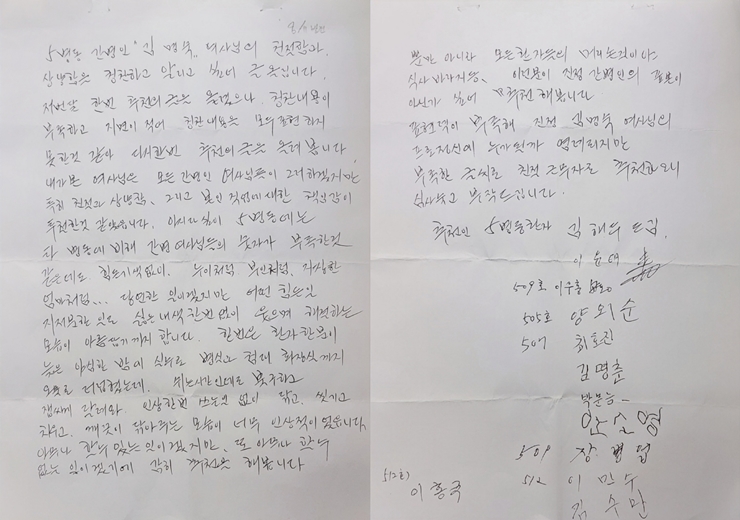 5병동 간병인 "김명숙" 여사님의 친절함과
상냥함을 칭찬하고 알리고 싶어 글 올립니다.
저번달 한번 추천의 글은 올렸으나 칭찬내용이
부족하고 지면이 적어 칭찬내용을 모두 표현하지
못한것 같아 다시한번 추천의 글을 올려 봅니다.
내가본 여사님은 모든 간병인 여사님들이 그러하겠지만
특히 친절과 상냥함, 그리고 본인 직업에 대한 책임감이
투철한것 같았습니다. 아시다 싶이 5병동에는
타 병동에 비해 간병 여사님들의 숫자가 부족한것
같은데도 힘든기색없이. 누이처럼 부인처럼, 자상한
엄마처럼... 당연한 일이겠지만 어떤 힘든일
지저분한 일도 싫은 내색 한번 없이 웃으며 해결하는
모습이 아름답기까지 합니다. 한번은 환자 한분이
늦은 야심한 밤에 실수로 병실과 침대 화장실까지
오물로 더럽혔는데. 쉬는시간인데도 불구하고
잽싸게 달려와 인상한번 쓰는것 없이 닦고. 씻기고
치우고. 깨끗이 닦아주는 모습이 너무 인상적이었습니다.
아무나 할수 있는 일이겠지만, 또 아무나 할수
없는 일이겠기에 감히 추천을 해봅니다
뿐만 아니라 모든환자들의
식사 마저도, 이런분이 진정 간병인의 표본이
아닌가 싶어 추천해봅니다
표현력이 부족해 진정 김명숙 여사님의
프로정신에 누가될까 염려되지만
부족한 글씨로 친절 근무자로 추천하오니
심사숙고 부탁드립니다.
추천인 5병동환자 김해수 드림.
509호 이우홍
505호 양외순
507 최호진
김명춘
안순영
509 장병덕
512호) 이흥국
512 이만수
김수만